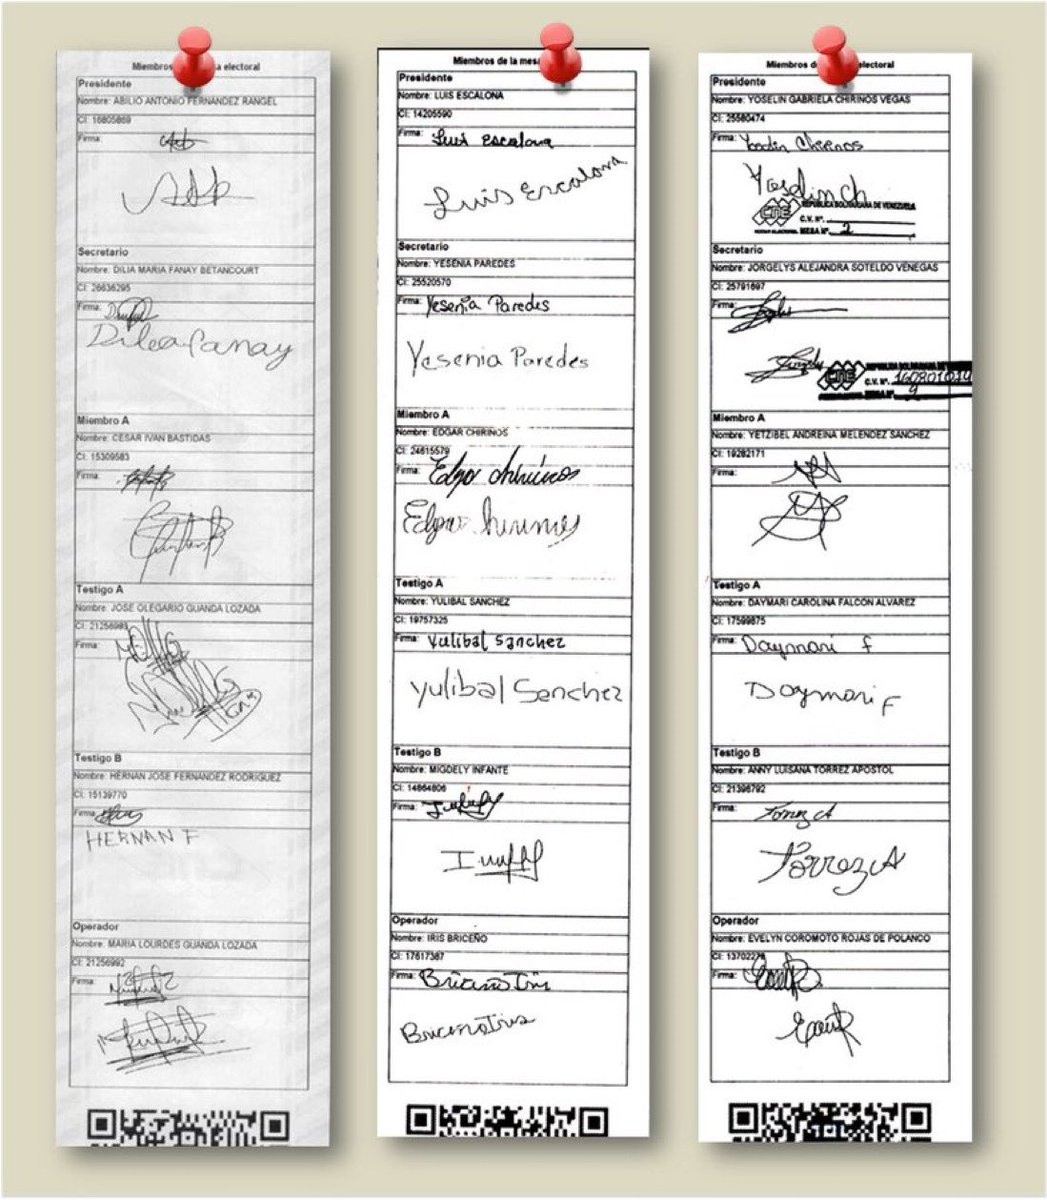 Miembros electoral
Presidente
Nombre: ABILIO ANTONIO FERNANDEZ RANGEL
CI: 16805869
Firma:
Secretario
Nombre: DILIA MARIA FANAY BETANCOURT
CI: 26636295
Firma:
Dilea fanay
Miembro A
Nombre: CESAR IVAN BASTIDAS
CI: 15309583
Firma:
Testigo A
Nombre: JOSE OLEGARIO GUANDA LOZADA
CI: 21256983
Firma:
Testigo B
Nombre: HERNAN JOSE FERNANDEZ RODRIGUEZ
CI: 15139770
Firma:
HERNAN F
Operador
Nombre: MARIA LOURDES GUANDA LOZADA
CI: 21256992
Firma:
Miembros de la mesa
Presidente
Nombre: LUIS ESCALONA
CI: 14205590
Firma: Luis escalona
Luis Escalona
Secretario
Nombre: YESENIA PAREDES
CI: 25520570
Firma: Yesenia Paredes
Yesenia Paredes
Miembro A
Nombre: EDGAR CHIRINOS
CI: 24615579
Firma:
Testigo A
Nombre: YULIBAL SANCHEZ
CI: 19757325
Firma: Yulibal Sanchez
Yulibal Senchez
Testigo B
Nombre: MIGDELY INFANTE
CI: 14864806
Firma:
Operador
Nombre: IRIS BRICEÑO
CI: 17617367
Firma: Briceño Iris
Briceno Iris
Miembros electoral
Presidente
Nombre: YOSELIN GABRIELA CHIRINOS VEGAS
CI: 25580474
Firma: Chirinos
Yoselin ch
CNE REPUBLICA BOLIVARIANA DE VENEZUELA
C.V. Nº.
MESA Nº. 2
Secretario
Nombre: JORGELYS ALEJANDRA SOTELDO VENEGAS
CI: 25791697
Firma:
CNE REPUBLICA BOLIVARIANA DE
C.V. Nº.
MESA Nº.
Miembro A
Nombre: YETZIBEL ANDREINA MELENDEZ SANCHEZ
CI: 19282171
Firma:
Testigo A
Nombre: DAYMARI CAROLINA FALCON ALVAREZ
CI: 17599875
Firma: Daymari f
Daymari F
Testigo B
Nombre: ANNY LUISANA TORREZ APOSTOL
CI: 21396792
Firma: Torrez A
Torrez A
Operador
Nombre: EVELYN COROMOTO ROJAS DE POLANCO
CI: 13702276
Firma: